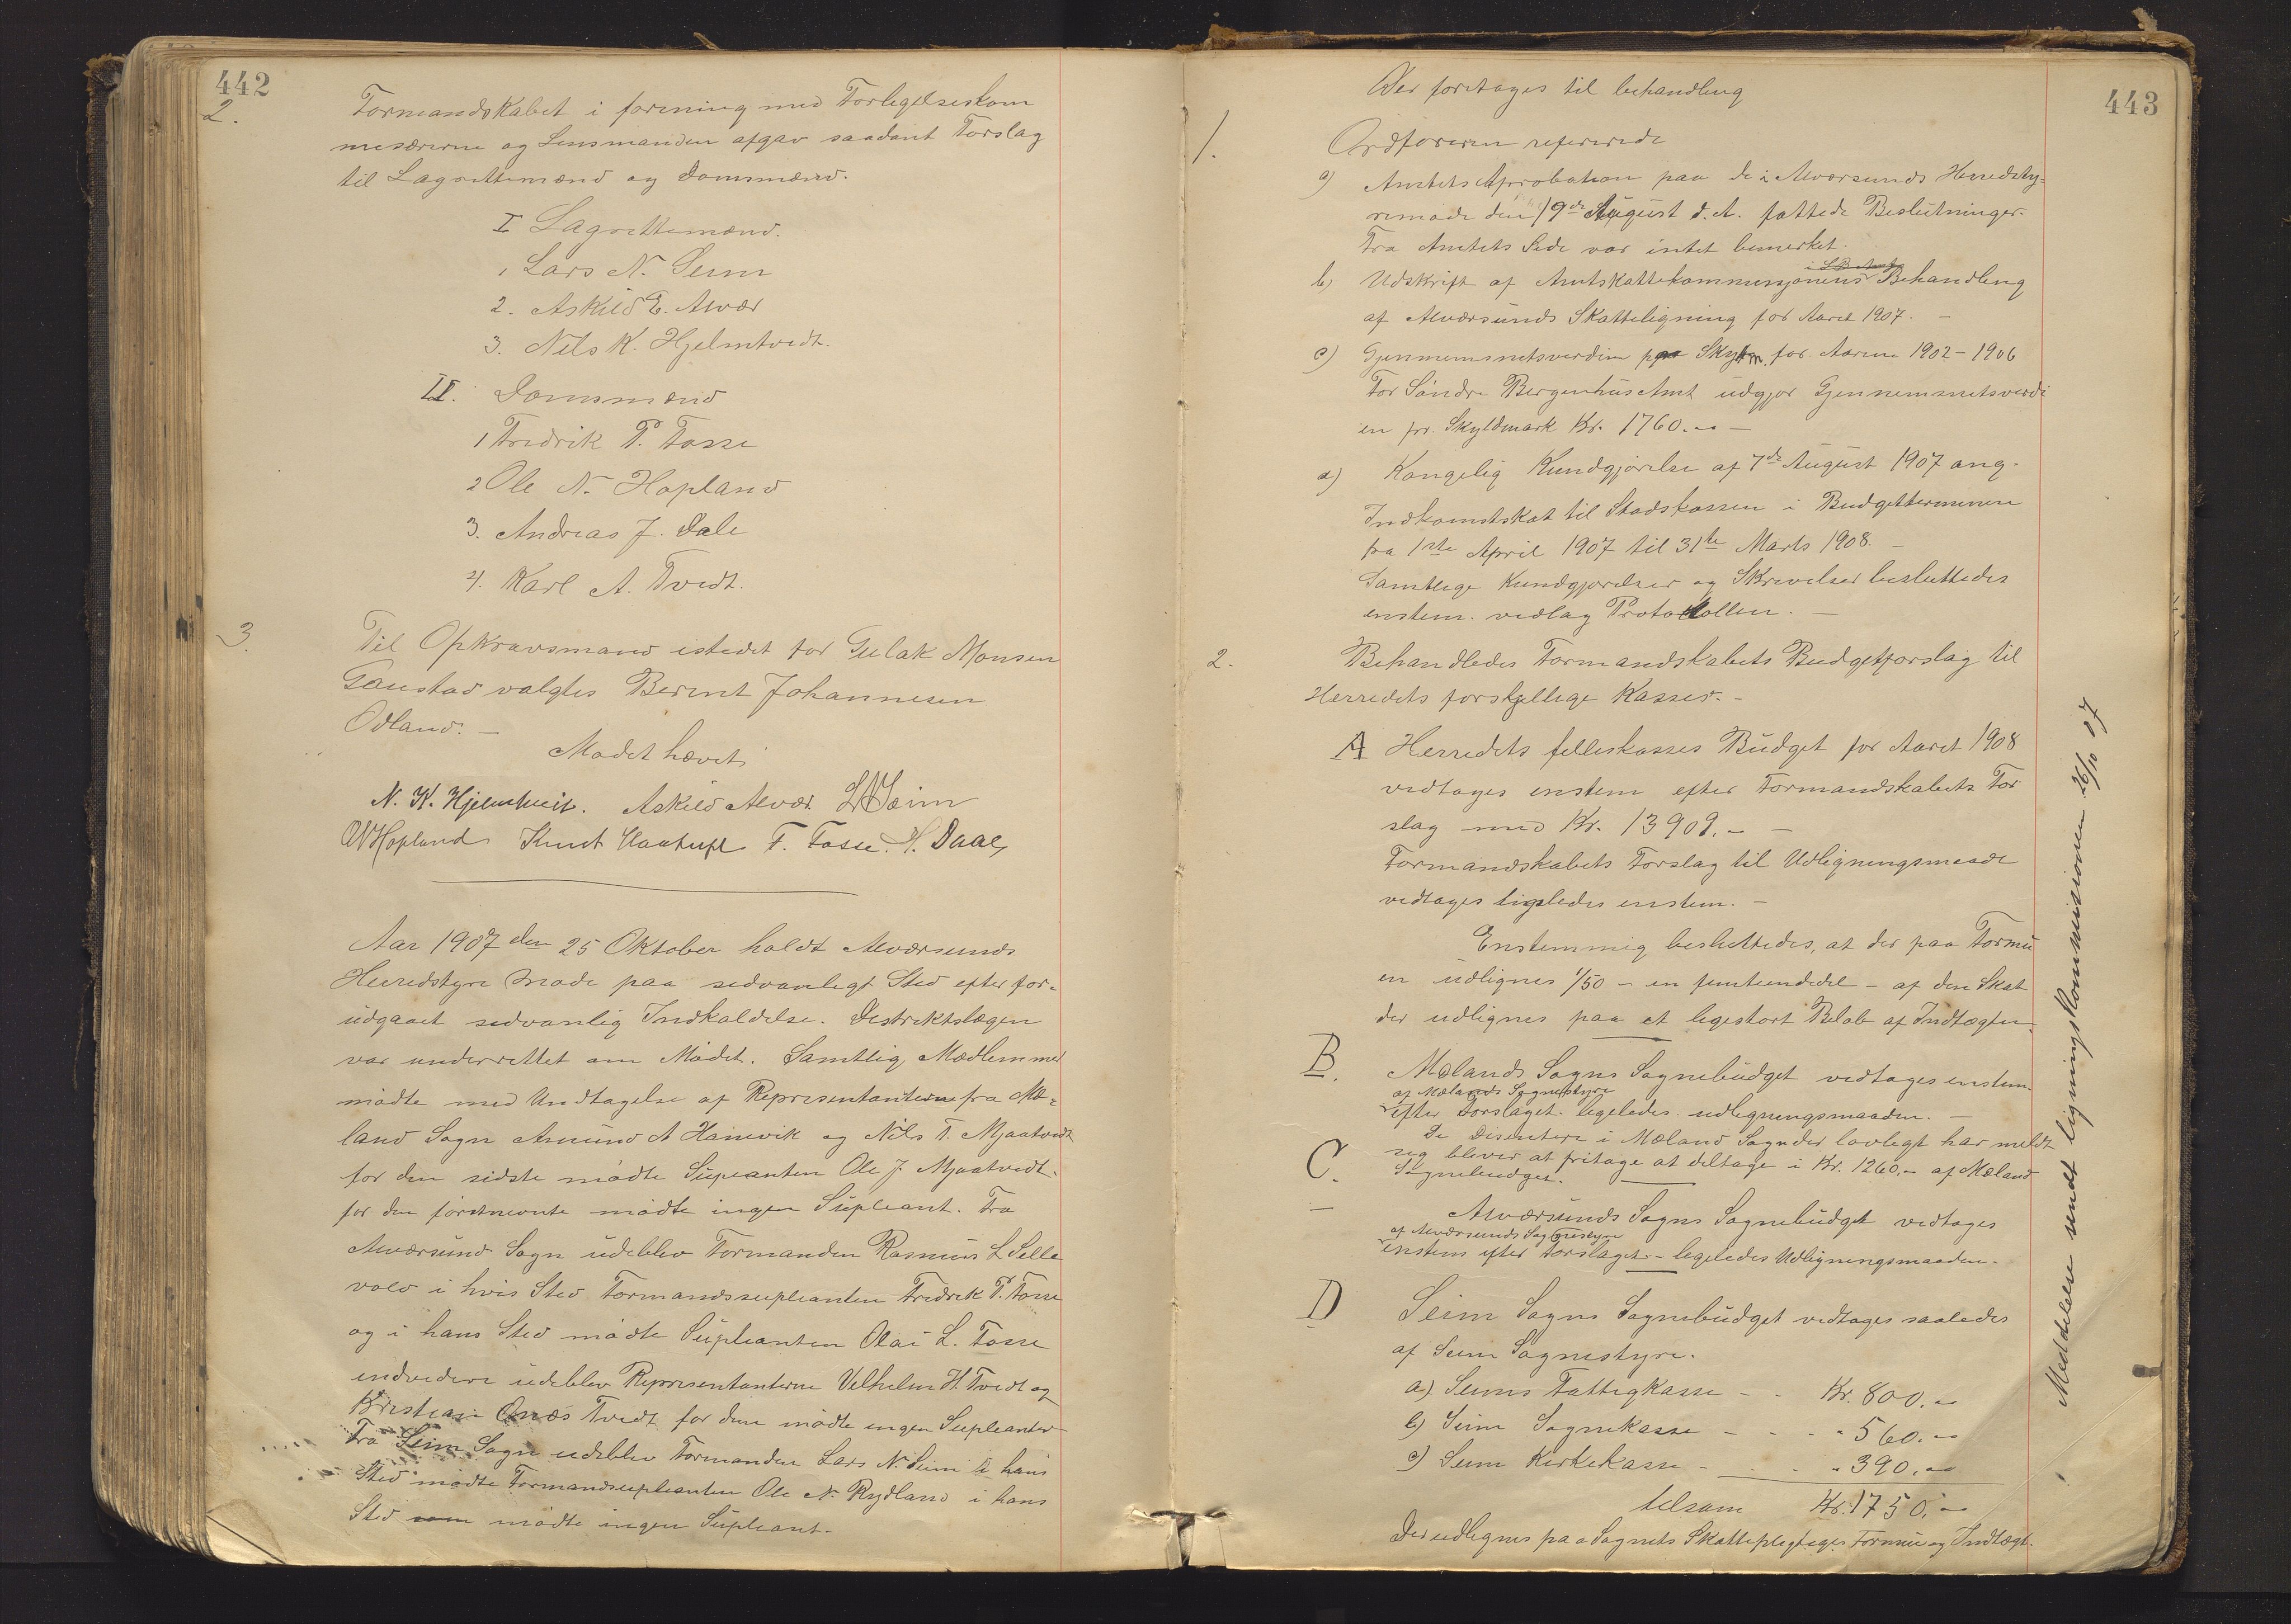 442
2.
Formandskabet i forening med Forligelseskom
mesærerne og Lensmanden afgav saadant Forslag
til Lagrettemænd og Domsmænd.
I Lagrettemænd.
1 Lars N. Seim
2. Askild E. Alvær
3. Nils K. Hjelmtvedt.
II. Domsmænd
1 Fredrik P. Fosse
2 Ole N. Hopland
3. Andreas J. Dale
4. Karl A. Tvedt.
3.
Til Opkravsmand istedet for Gulak Monsen
Gaustad valgtes Berent Johannesen
Odland. —
Mødet hævet
N. K. Hjelmtveit. Askild Alvær. L N Seim
O N Hopland Knut F. Fosse. A. Daae,
Aar 1907 den 25 Oktober holdt Alværsunds
Herredstyre Møde paa sedvanligt Sted efter for-
udgaaet sedvanlig Indkaldelse. Destriktslægen
var underrettet om Mødet. Samtlig Medlemmer
mødte med Undtagelse af Representanterne fra Mæ-
land Sogn Amund A Hanevik og Nils T. Mjaatvedt
for den sidste mødte Supleanten Ole J. Mjaatvedt.
for den førstnevnte mødte ingen Supleant. Fra
Alværsund Sogn udeblev Formanden Rasmus L Selle
vold i hvis Sted Formandssupleanten Fredrik P. Fosse
og i hans Sted mødte Supleanten Olai L. Fosse
endvedere udeblev Representanterne Velhelm H. Tvedt og
Kristian Onæs Tvedt for dem mødte ingen Supleanter
Fra Seim Sogn udeblev Formanden Lars N. Seim i hans
Sted mødte Formandsupleanten Ole N. Rydland i hans
Sted som mødte ingen Supleant.
443
Der foretages til behandling
1.
Ordføreren refererede
a) Amtets Aprobation paa de i Alværsunds Herredsty-
remøde den 19de August d. A. fattede Beslutninger.
Fra Amtets Side var intet bemerket.
b) Udskrift af Amtskattekommissjonens Behandling
af Alværsunds Skatteligning for Aaret 1907. —
c) Gjennemsnetsverdien paa Skylm. for Aarene 1902 - 1906
For Søndre Bergenhus Amt udgjør Gjennemsnetsverdi
en pr. Skyldmark Kr. 1760. —
d) Kongelig Kundgjørelse af 7de August 1907 ang.
Indkomstskat til Stadskassen i Budgetterminen
fra 1ste April 1907 til 31te Marts 1908. —
Samtlege Kundgjørelser og Skrevelser besluttedes
enstem. vedlag Protokollen. —
2.
Behandledes Formandskabets Budgetforslag til
Herredets forskjellige Kasser. -
A Herredets felleskasses Budget for Aaret 1908
vedtages enstem efter Formandskabets For
slag med Kr. 13909. - —
Formandskabets Forslag til Udligningsmaade
vedtages ligeledes enstem. —
Enstemmig besluttedes, at der paa Formu
en udlignes 1/50 - en femtiendedel - af den Skat
der udlignes paa et legestort Beløb af Indtægten.
B. Mælands Sogns Sognebudget vedtages enstem.
af Mælands Sognestyre
efter Forslaget. legeledes udlegningsmaaden. —
De Disentere i Mæland Sogn der lovlegt har meldt
seg blever at fritage at deltage i Kr. 1260.- af Mæland
Sognebudget.
C.
Alværsunds Sogns Sognebudget vedtages
af Alværsunds Sognestyre
enstem efter Forslaget. - legeledes Udligningsmaaden.
D Seim Sogns Sognebudget vedtages saaledes
af Seim Sognestyre.
a) Seims Fattigkasse - - Kr. 800. -
b) Seim Sognekasse - - - " 560. -
c) Seim Kirkekasse - - - " 390. -
telsam Kr. 1750. -
Der udlignes paa Sognets Skattepligtiges Formue og Indtægt.
Meddelelse sendt ligningskommissionen 26/10 07